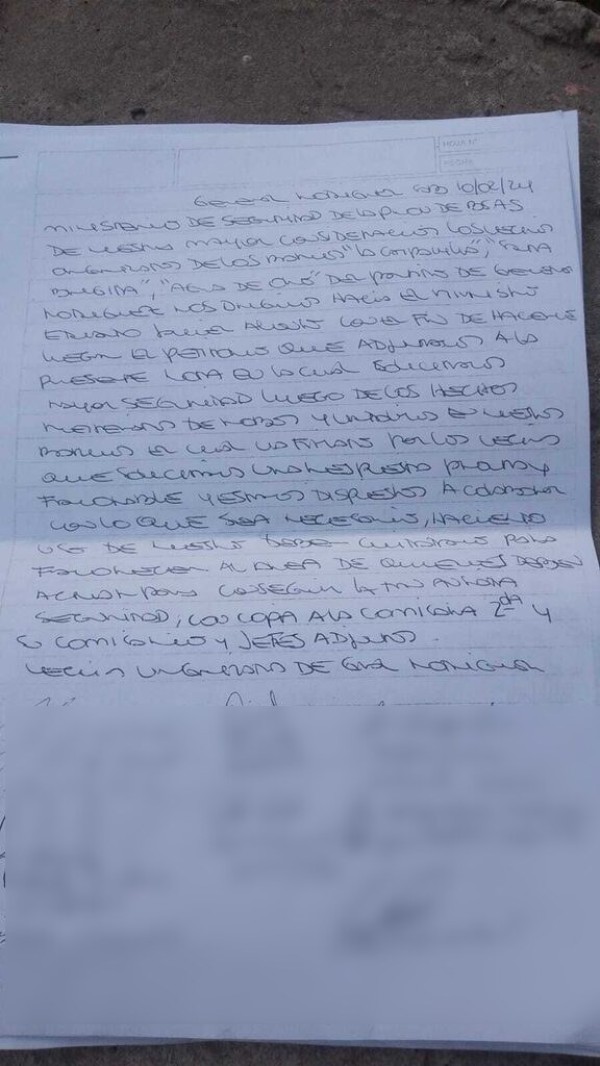 HOJA Nº
FECHA
General Rodriguez 10/02/24
MINISTERIO DE SEGURIDAD DE LA PROV DE BS AS
DE NUESTRA MAYOR CONSIDERACION LOS VECINOS
ORGANIZADOS DE LOS BARRIOS "LA
"AGUA DE ORO" DEL PARTIDO DE GENERAL
RODRIGUEZ NOS DIRIGIMOS HACIA EL MINISTRO
CON EL FIN DE HACERLE
LLEGAR EL PETITORIO QUE ADJUNTAMOS A LA
PRESENTE NOTA EN LA CUAL SOLICITAMOS
MAYOR SEGURIDAD LUEGO DE LOS HECHOS
REITERADOS DE ROBOS Y EN NUESTROS
BARRIOS EL CUAL VA FIRMADO POR LOS VECINOS
QUE SOLICITAMOS UNA RESPUESTA PRONTA Y
FAVORABLE Y ESTAMOS DISPUESTOS A COLABORAR
CON LO QUE SEA NECESARIO, HACIENDO
USO DE NUESTRO DEBER CIUDADANO PARA
FAVORECER AL AREA DE QUIENES DEBEN
ACTUAR PARA CONSEGUIR LA TAN AÑORADA
SEGURIDAD, CON COPIA A LA COMISARIA 2da Y
SU COMISARIO Y JEFES ADJUNTOS.
VECINOS ORGANIZADOS DE GRAL RODRIGUEZ